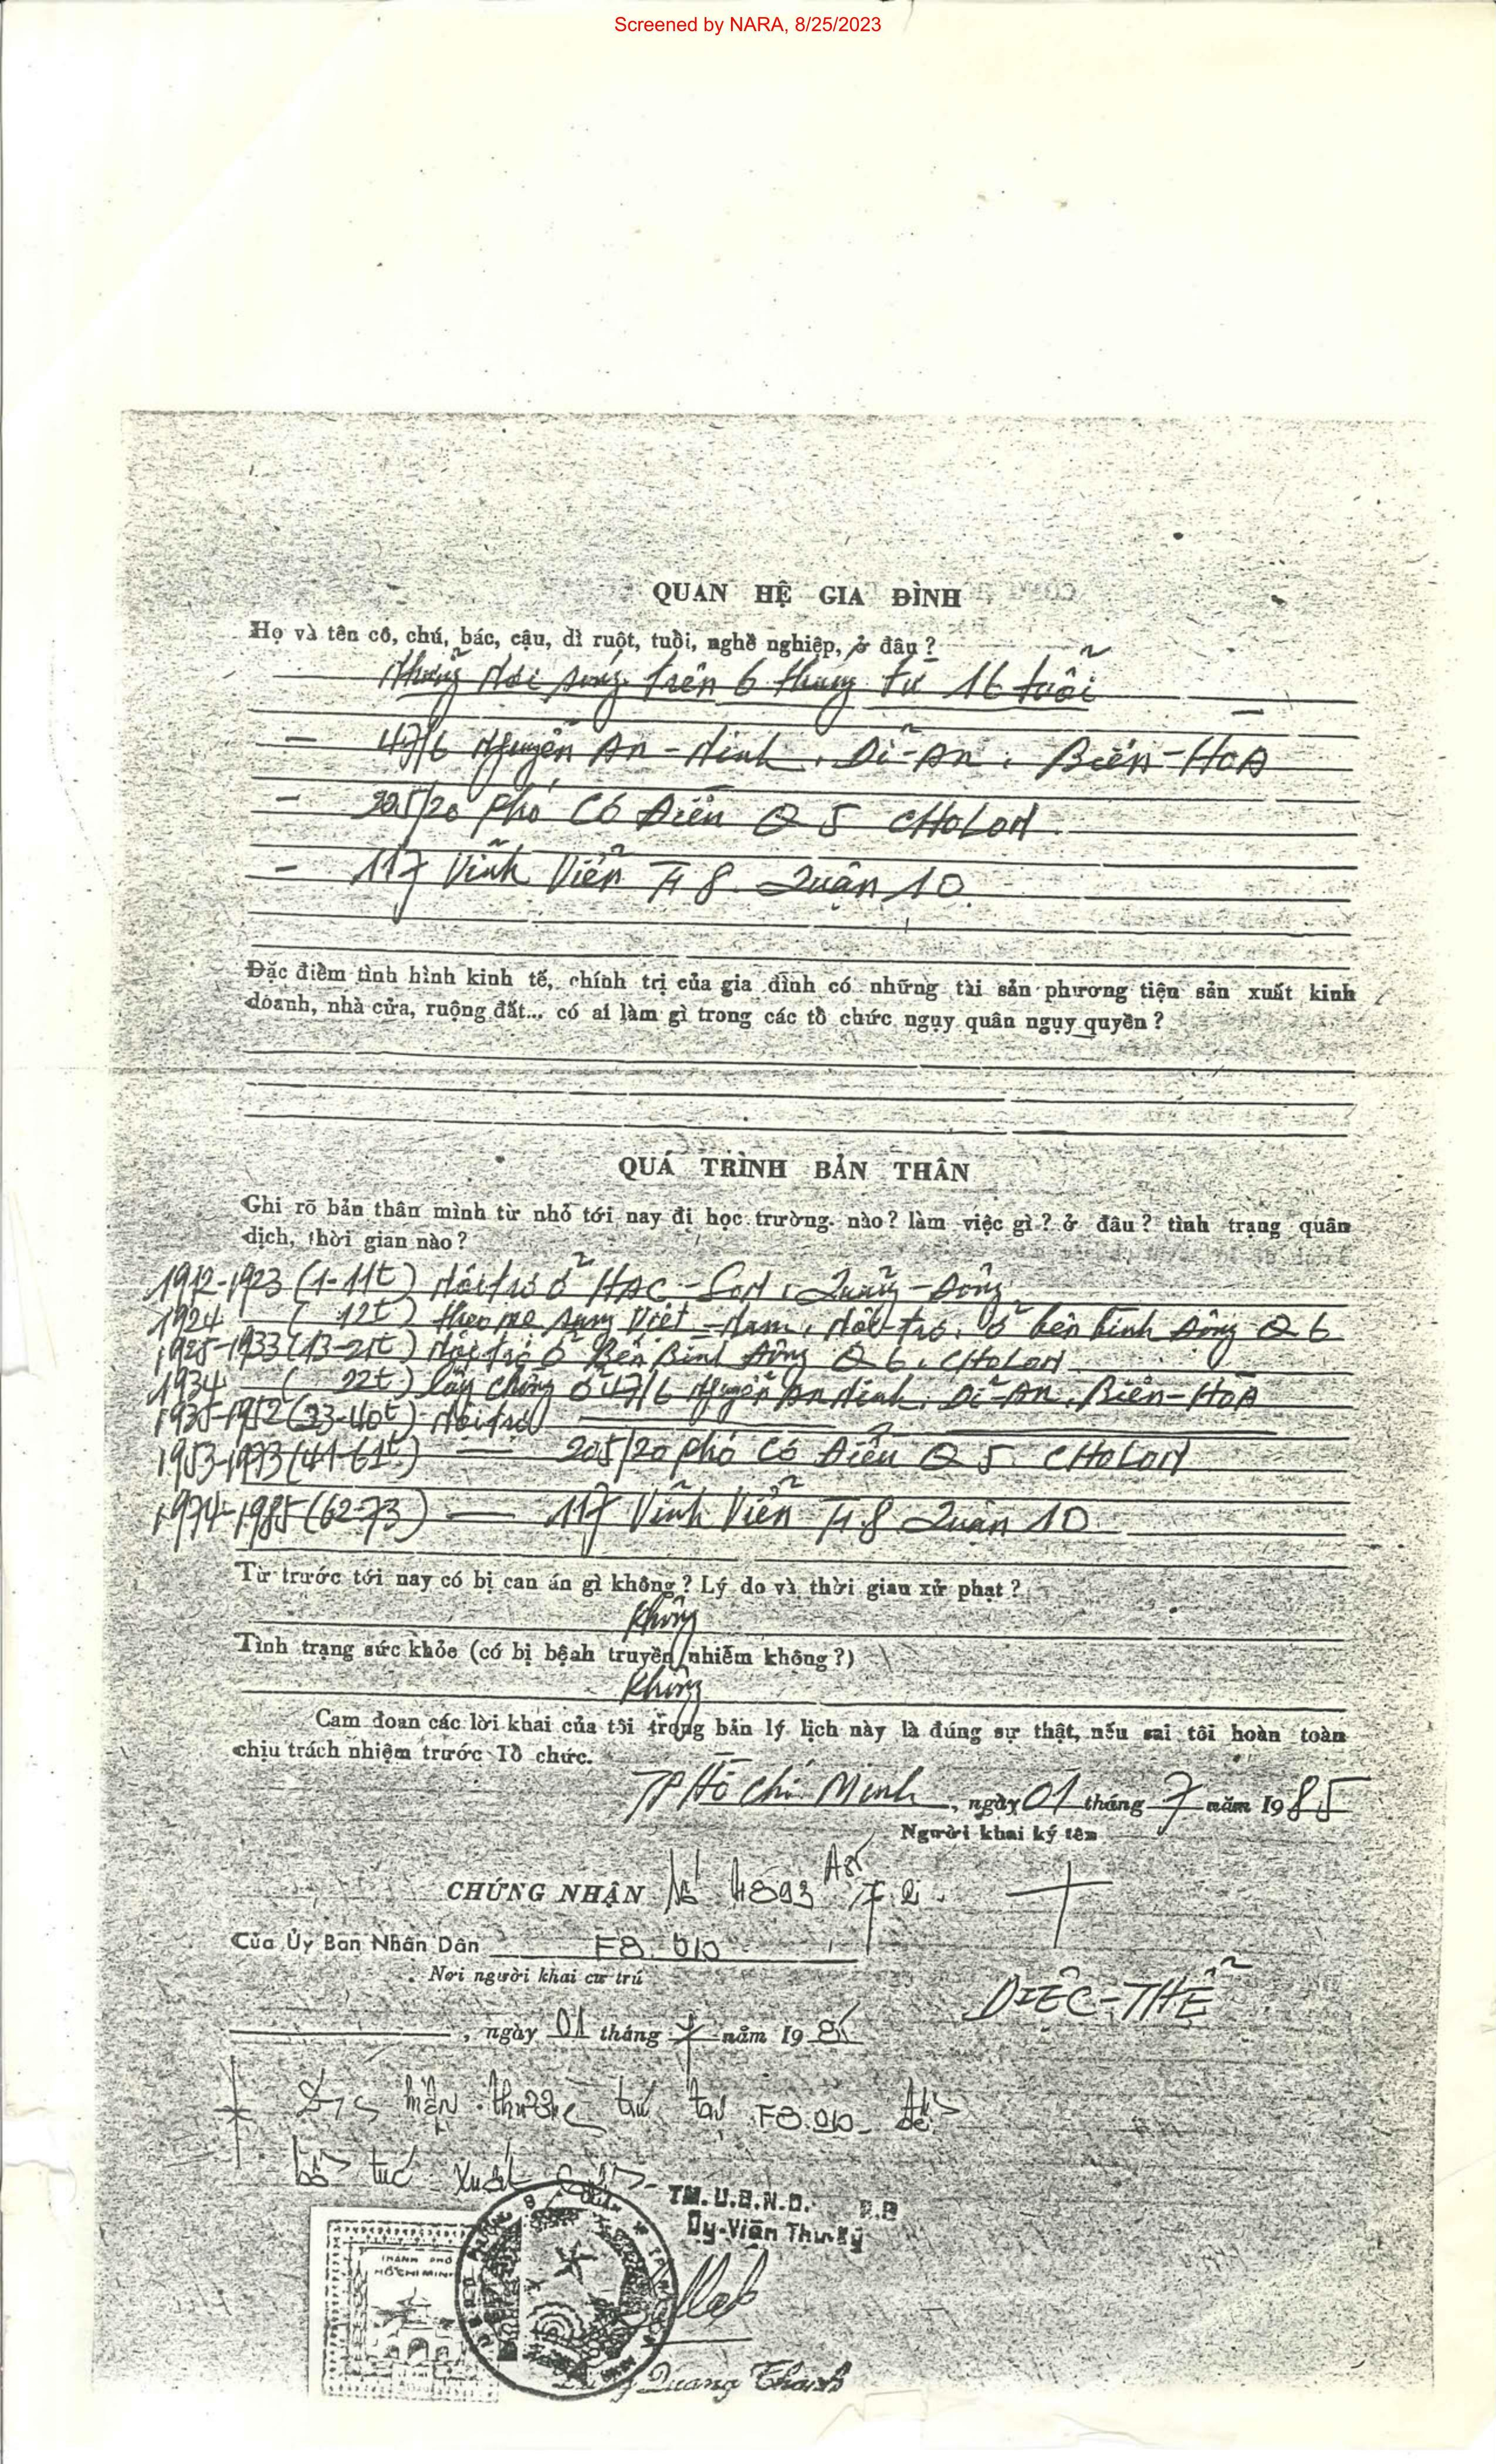 Screened by NARA, 8/25/2023
QUAN HỆ GIA ĐÌNH
Họ và tên cô, chú, bác, cậu, dì ruột, tuổi, nghề nghiệp, ở đâu?
Những nơi sống trên 6 tháng từ 16 tuổi
- 47/6 Nguyễn An-Ninh, Dĩ-An, Biên-Hoà
- 205/20 Phó Cơ Điều Q 5 CHOLON
- 117 Vĩnh Viễn F 8 Quận 10.
Đặc điểm tình hình kinh tế, chính trị của gia đình có những tài sản phương tiện sản xuất kinh
doanh, nhà cửa, ruộng đất... có ai làm gì trong các tổ chức ngụy quân ngụy quyền?
QUÁ TRÌNH BẢN THÂN
Ghi rõ bản thân mình từ nhỏ tới nay đi học trường nào? làm việc gì? ở đâu? tình trạng quân
dịch, thời gian nào?
1912-1923 (1-11t) Nội trợ ở HAC-SON, Quảng-Đông
1924 ( 12t) theo mẹ sang Việt-Nam, Nội-trợ, ở bến bình đông Q 6
1925-1933 (13-21t) Nội trợ ở Bến Bình Đông Q 6, CHOLON
1934 ( 22t) lấy chồng ở 47/6 Nguyễn An Ninh, Dĩ-An, Biên-Hoà
1935-1952 (23-40t) Nội trợ
1953-1973 (41-61t) — 205/20 Phó Cơ Điều Q 5 CHOLON
1974-1985 (62-73) — 117 Vĩnh Viễn F.8 Quận 10
Từ trước tới nay có bị can án gì không? Lý do và thời gian xử phạt?
Không
Tình trạng sức khỏe (có bị bệnh truyền nhiễm không?)
Không
Cam đoan các lời khai của tôi trong bản lý lịch này là đúng sự thật, nếu sai tôi hoàn toàn
chịu trách nhiệm trước Tổ chức.
TP Hồ Chí Minh, ngày 01 tháng 7 năm 1985
Người khai ký tên
CHỨNG NHẬN Số 4893
Của Ủy Ban Nhân Dân F8. Q10
Nơi người khai cư trú
DIỆC-THỂ
, ngày 01 tháng 7 năm 198
hiện thường trú tại F8.Q10 để
bổ túc xuất cảnh
TM. U.B.N.D. P.8
Ủy-Viên Thư-Ký
THÀNH PHỐ
HỒ CHÍ MINH
Quang Thanh